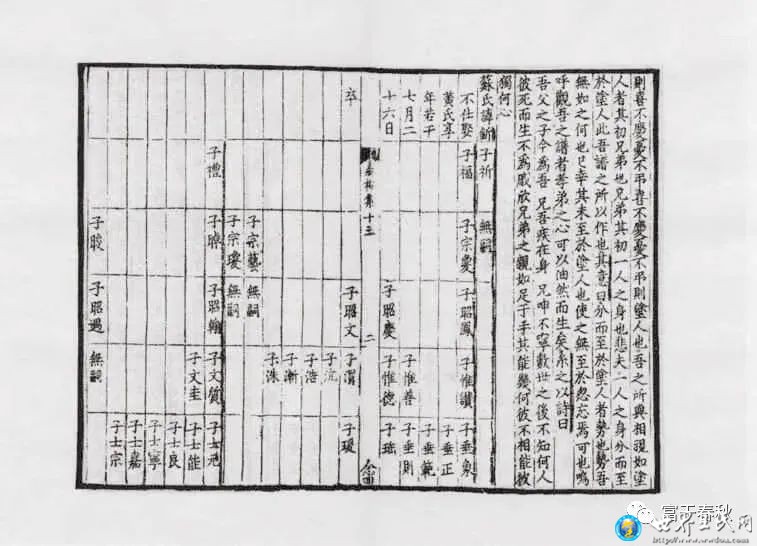 則喜不慶憂不弔喜不慶憂不弔則塗人也吾之所與相視如塗
人者其初兄弟也兄弟其初一人之身也悲夫一人之身分而至
於塗人此吾譜之所以作也其意曰分而至於塗人者勢也勢吾
無如之何也已幸其未至於塗人也使之無至於忽忘焉可也嗚
呼觀吾之譜者孝弟之心可以油然而生矣系之以詩曰
吾父之子今為吾兄吾疾在身兄呻不寧數世之後不知何人
彼死而生不為戚欣兄弟之親如足于手其能幾何彼不相能彼
獨何心
蘇氏諱釿 子祈 無嗣
不仕娶 子福 子宗夐 子昭鳳 子惟讚 子垂象
黃氏享 子垂正
年若干 子惟善 子垂範
七月二 子垂則
十六日 子昭慶 子惟德 子珤
嘉祐集十三 二
卒 子昭文 子渭 子瑗
子沆
子浩
子漸
子洙
子宗藝 無嗣
子宗瓊 無嗣
子禮 子暉 子昭翰 子文質 子士元
子文圭 子士能
子士良
子士寧
子士嘉
子晈 子昭遇 無嗣 子士宗
富于春秋
http://www.wwdoa.com